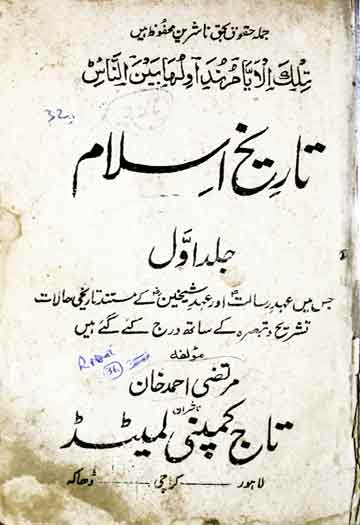 جملہ حقوق بحق ناشرین محفوظ ہیں
تِلْكَ الْاَيَّامُ نُدَاوِلُهَا بَيْنَ النَّاسِ
32
تاریخ اسلام
جلد اوّل
جس میں عہد رسالتؐ اور عہد شیخینؓ کے مستند تاریخی حالات
تشریح و تبصرہ کے ساتھ درج کئے گئے ہیں
مؤلفہ
مرتضیٰ احمد خان
ناشران
تاج کمپنی لمیٹڈ
لاہور — کراچی — ڈھاکہ